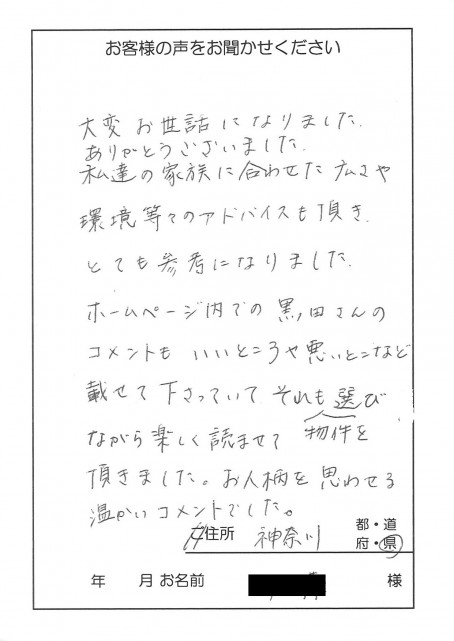 お客様の声をお聞かせください
大変お世話になりました.
ありがとうございました.
私達の家族に合わせた広さや
環境等でのアドバイスも頂き.
とても参考になりました.
ホームページ内での黒田さんの
コメントも いいところや悪いとこなど
載せて下さっていて それも選び
ながら楽しく読ませて 物件を
頂きました。お人柄を思わせる
温かいコメントでした。
ご住所 神奈川 都・道
府・県
年 月 お名前 様